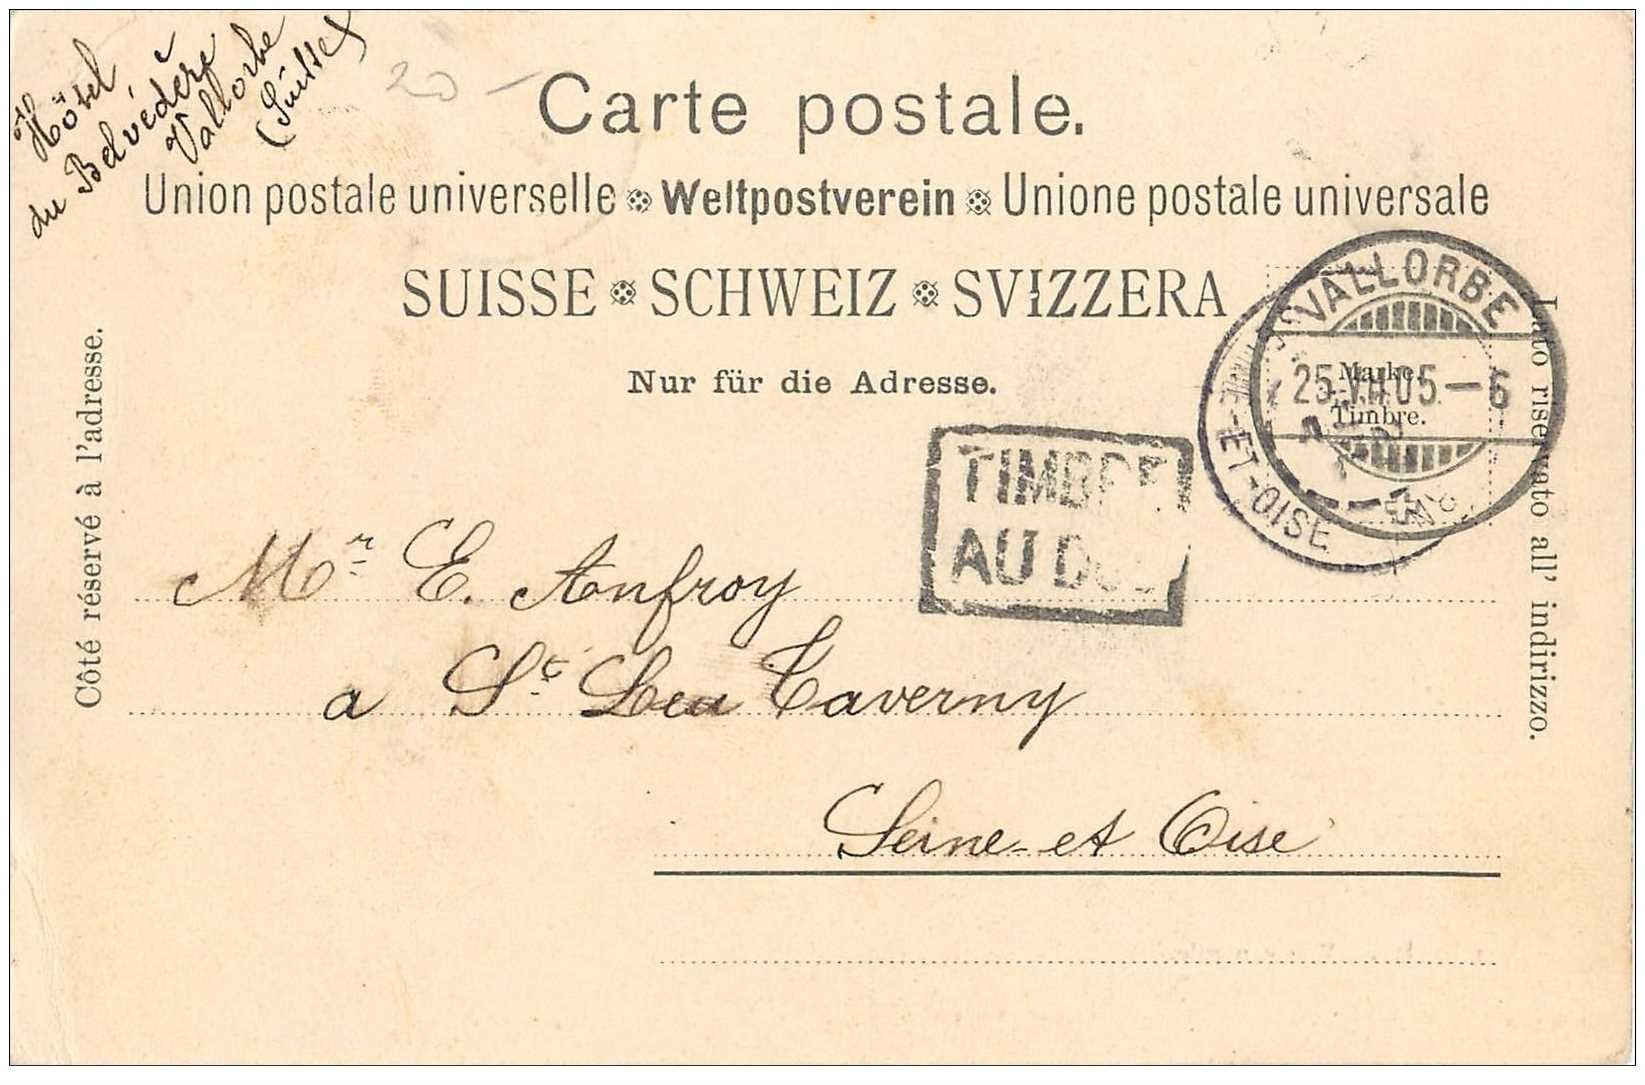 Hôtel
du Belvédère
Vallorbe
(Suisse)
20 -
Carte postale.
Union postale universelle Weltpostverein Unione postale universale
SUISSE SCHWEIZ SVIZZERA
Nur für die Adresse.
Côté réservé à l'adresse.
Lato riservato all' indirizzo.
Marke.
Timbre.
VALLORBE
25.VII.05.-6
-ET-OISE
TIMBRE
AU DOS
Mr E. Anfroy
a St Leu Taverny
Seine-et Oise